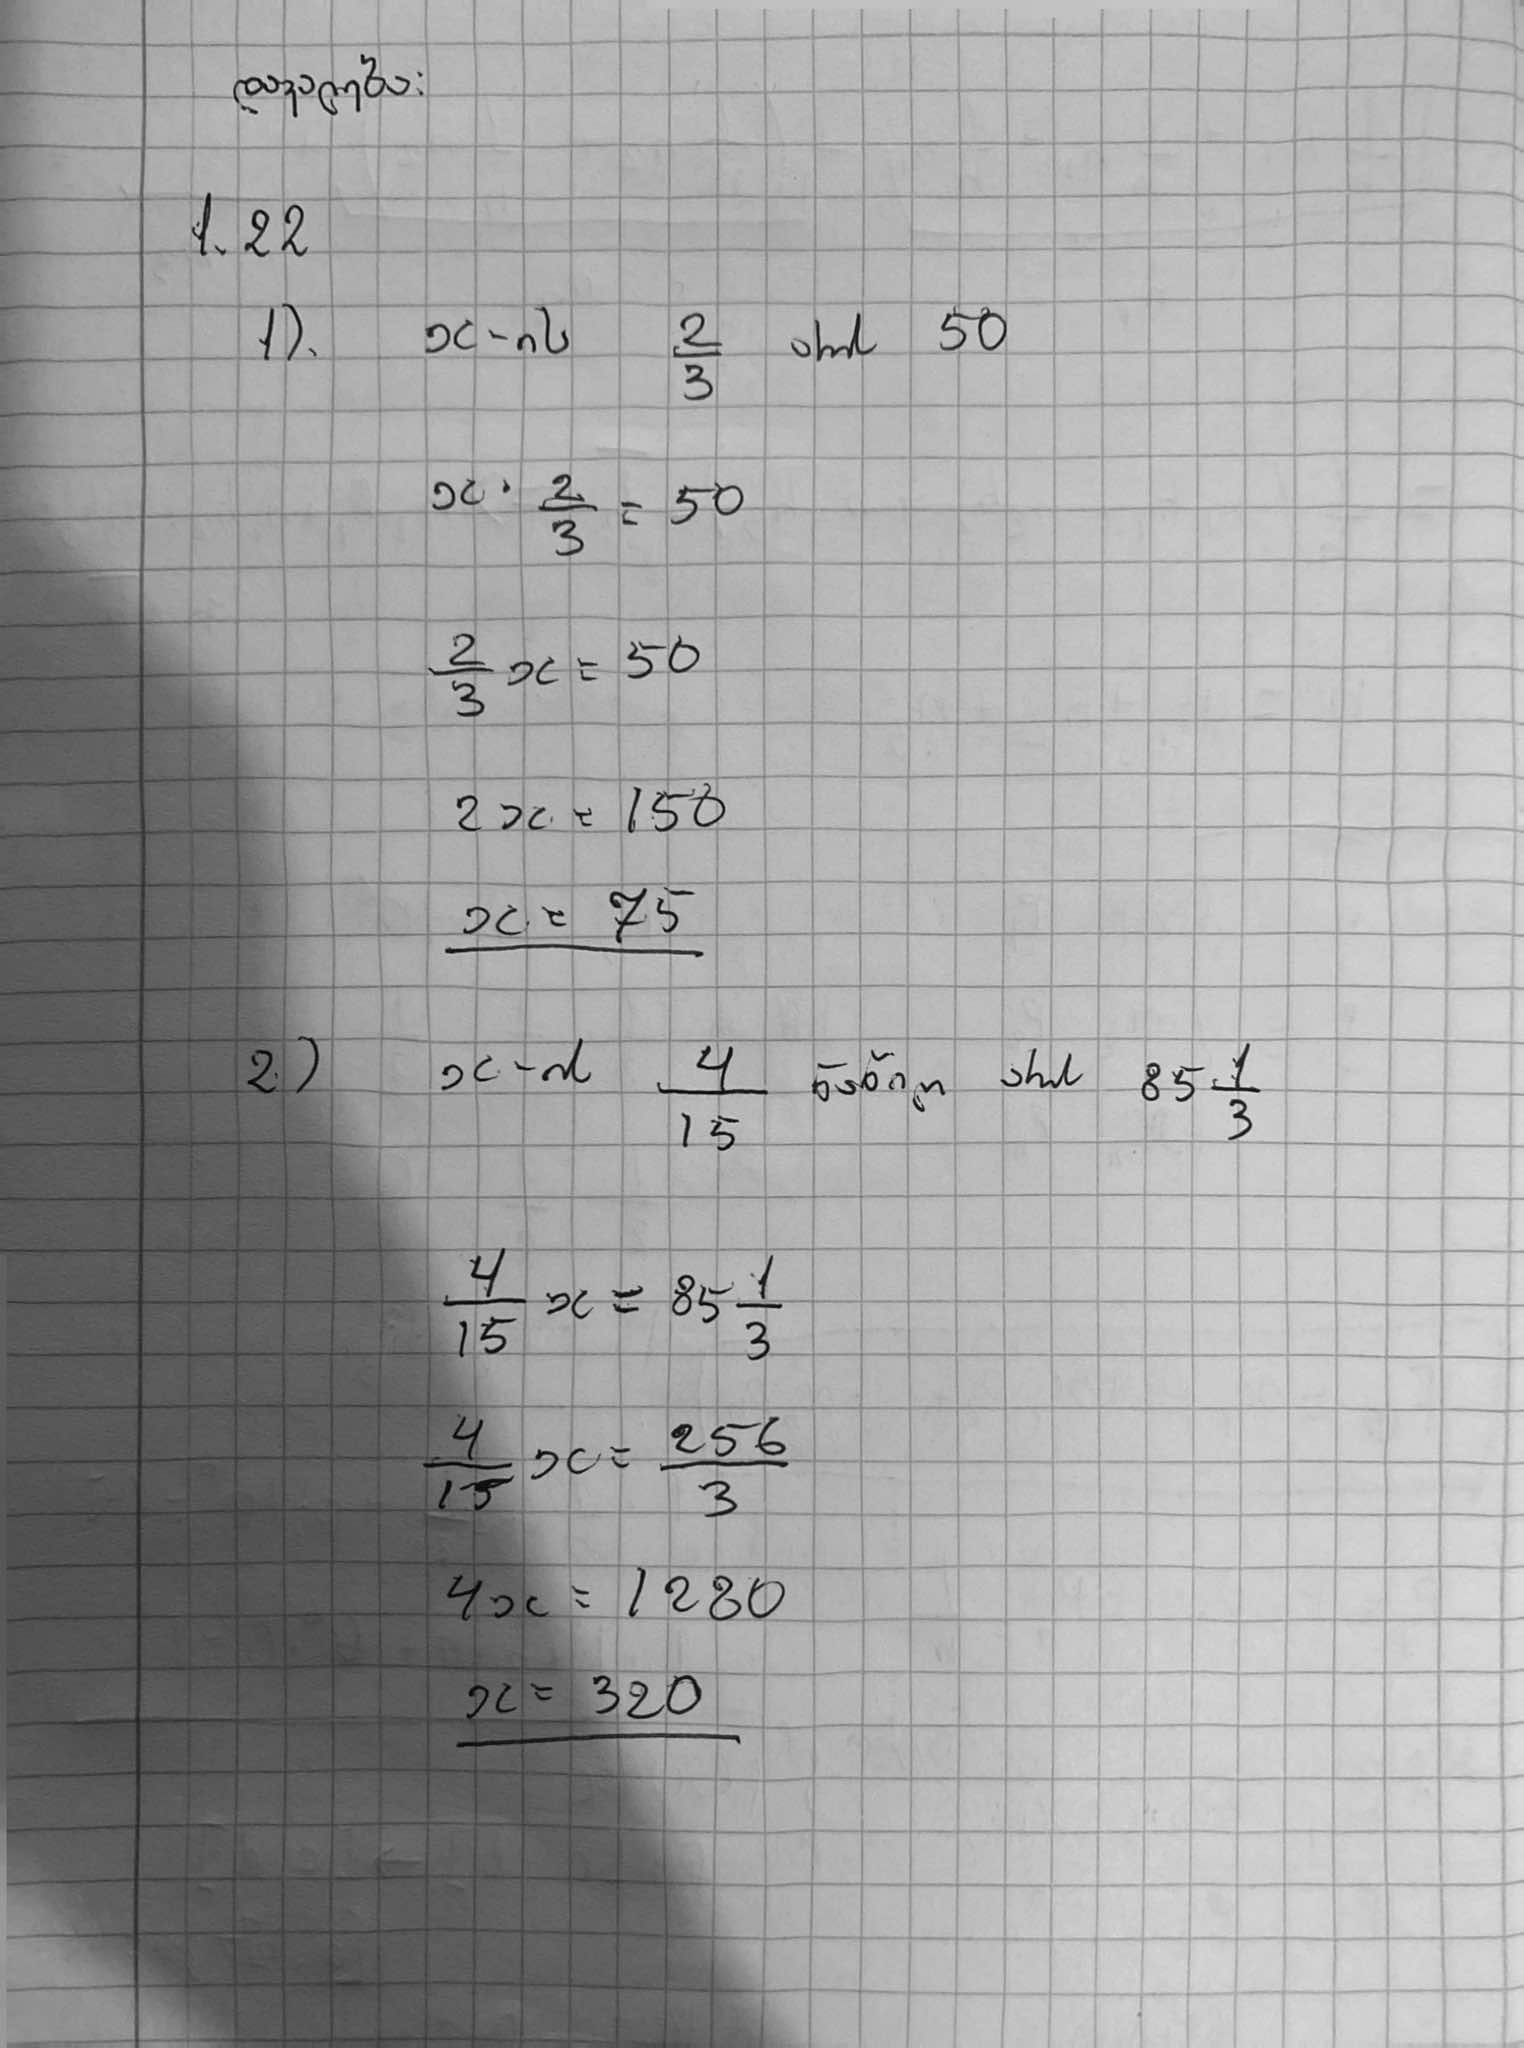 დავალება:
1.22
1). x-ის 2/3 არის 50
x · 2/3 = 50
2/3 x = 50
2x = 150
x = 75
2.) x-ის 4/15 ნაწილი არის 85 1/3
4/15 x = 85 1/3
4/15 x = 256/3
4x = 1280
x = 320